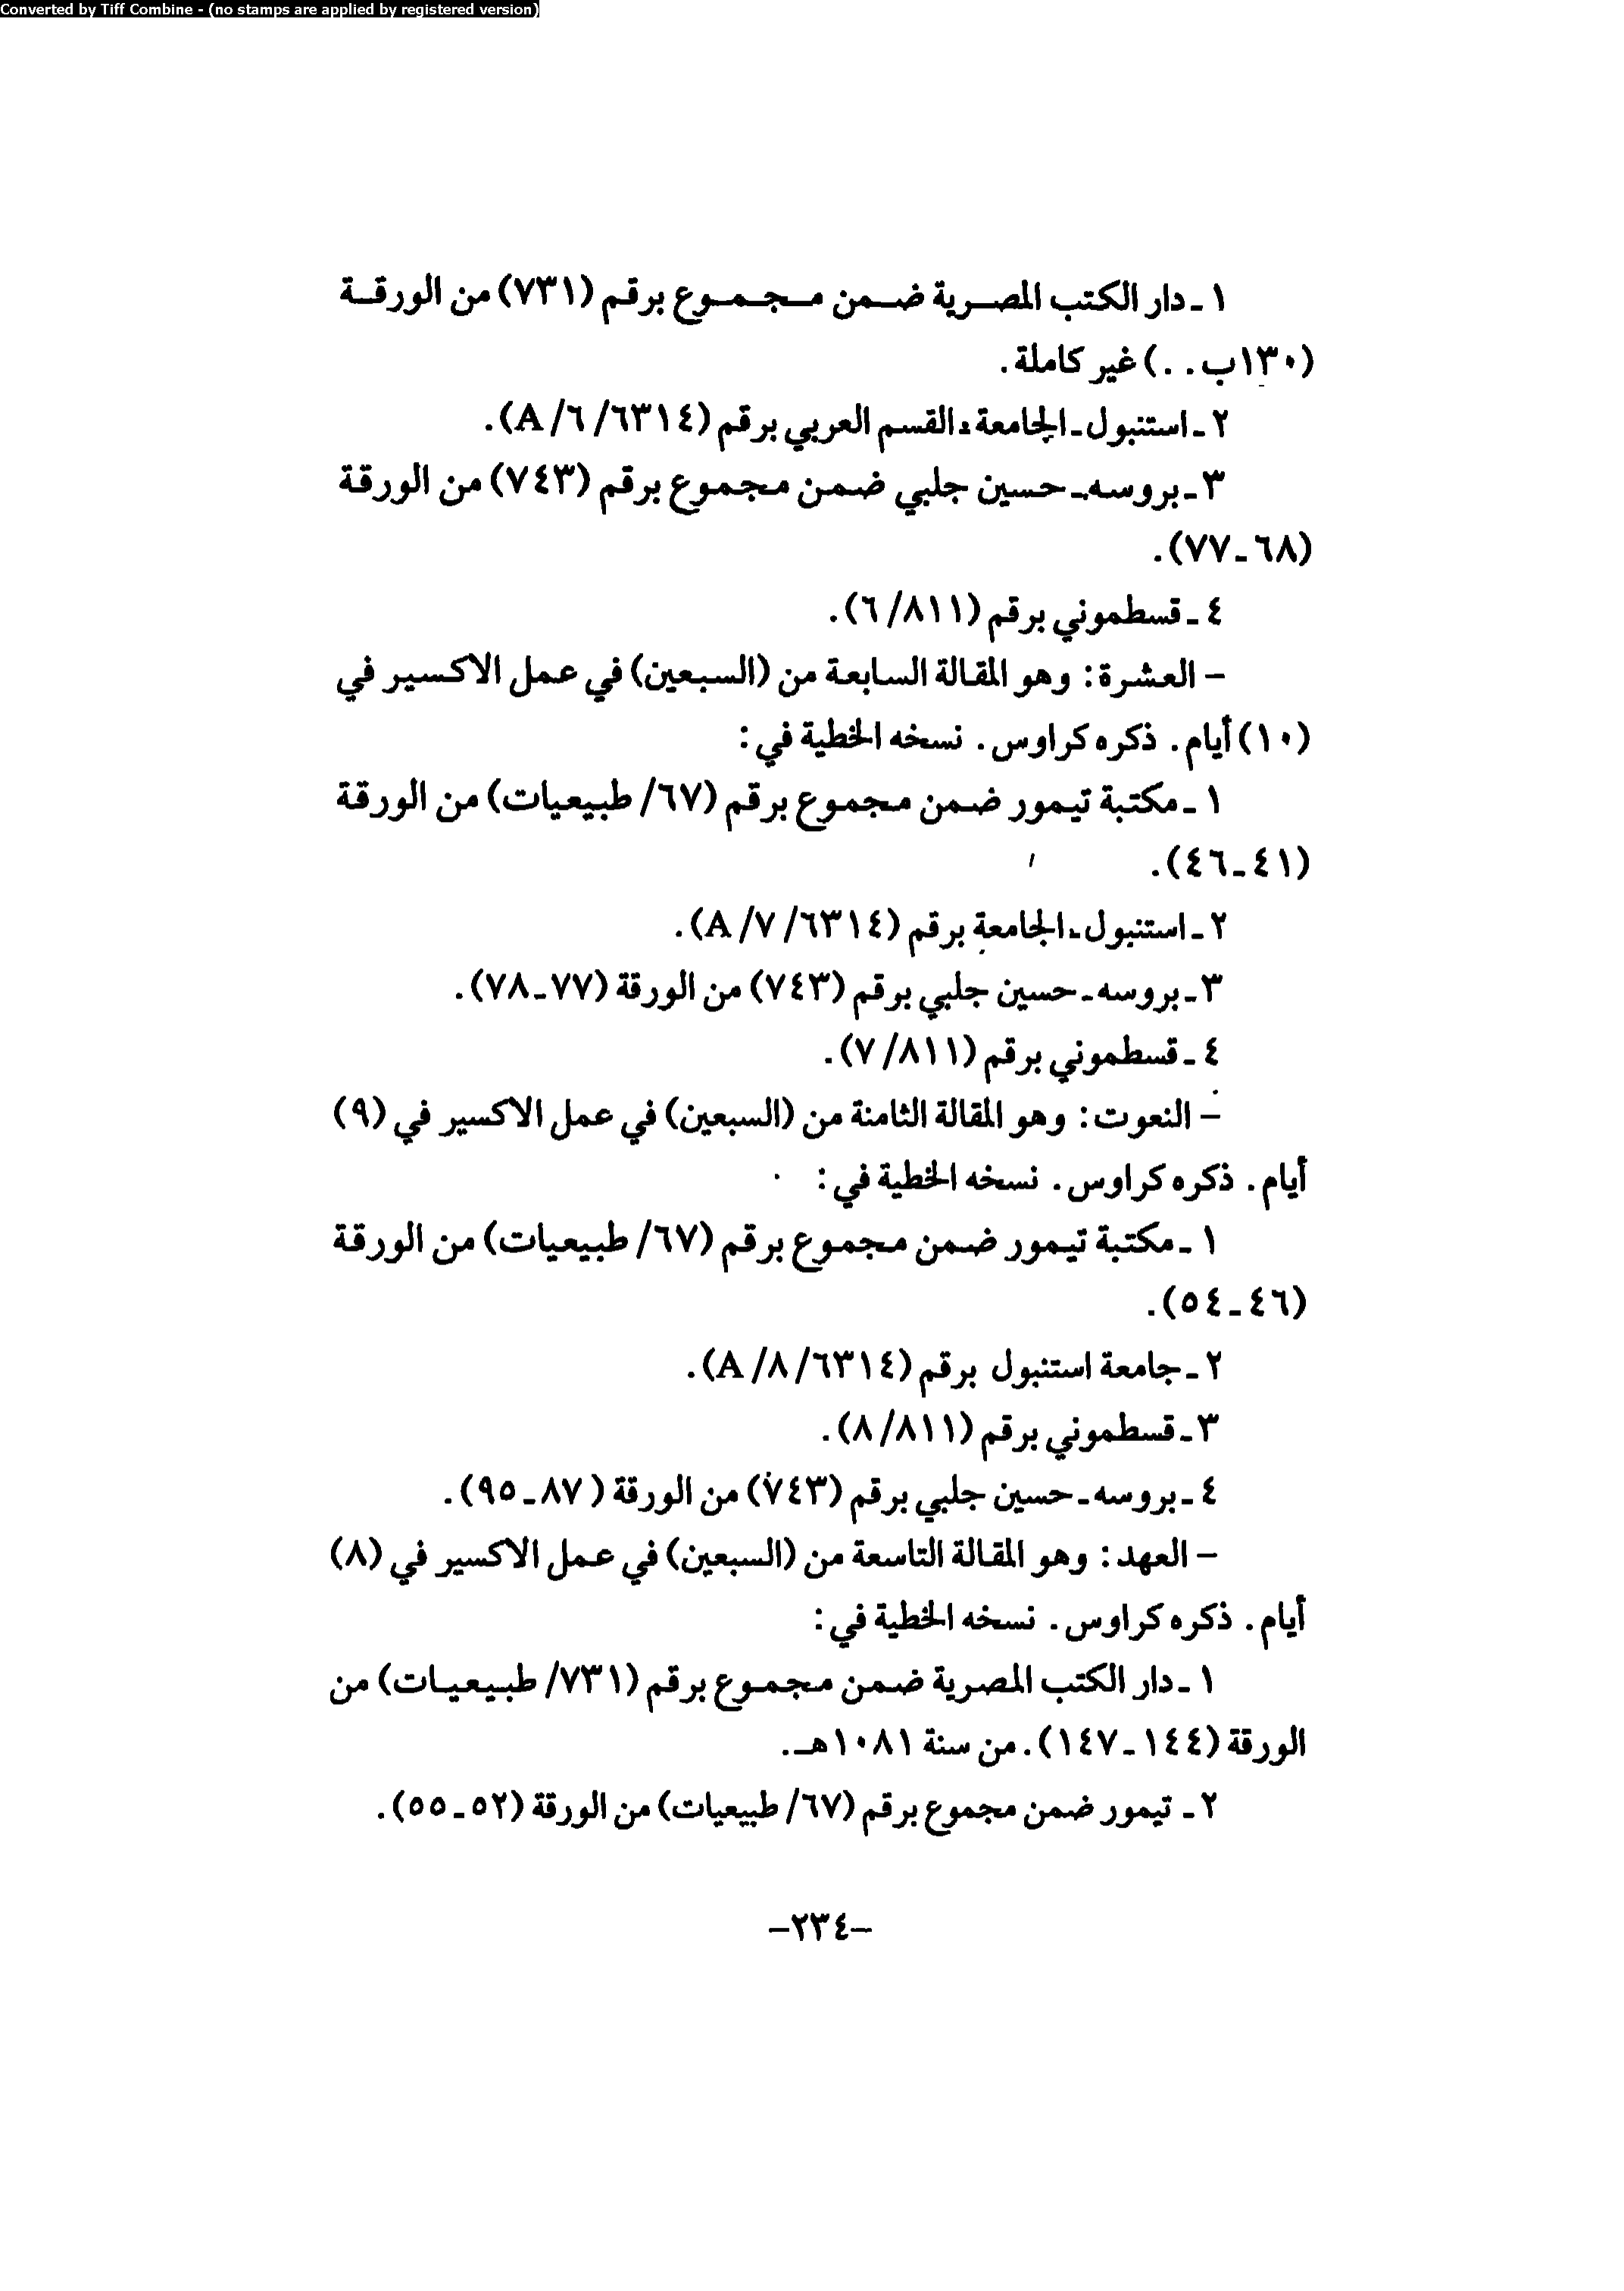 Converted by Tiff Combine - (no stamps are applied by registered version)
١ ـ دار الكتب المصرية ضمن مجموع برقم (٧٣١) من الورقة
(١٣٠ب . .) غير كاملة .
٢ ـ استنبول ـ الجامعة ـ القسم العربي برقم (٦٣١٤/ ٦/ A).
٣ ـ بروسه ـ حسين جلبي ضمن مجموع برقم (٧٤٣) من الورقة
(٦٨ ـ ٧٧).
٤ ـ قسطموني برقم (٨١١/ ٦).
– العشرة : وهو المقالة السابعة من (السبعين) في عمل الاكسير في
(١٠) أيام . ذكره كراوس . نسخه الخطية في :
١ ـ مكتبة تيمور ضمن مجموع برقم (٦٧/ طبيعيات) من الورقة
(٤١ ـ ٤٦).
٢ ـ استنبول ـ الجامعة برقم (٦٣١٤/ ٧/ A).
٣ ـ بروسه ـ حسين جلبي برقم (٧٤٣) من الورقة (٧٧ ـ ٧٨).
٤ ـ قسطموني برقم (٨١١/ ٧).
– النعوت : وهو المقالة الثامنة من (السبعين) في عمل الاكسير في (٩)
أيام . ذكره كراوس . نسخه الخطية في :
١ ـ مكتبة تيمور ضمن مجموع برقم (٦٧/ طبيعيات) من الورقة
(٤٦ ـ ٥٤).
٢ ـ جامعة استنبول برقم (٦٣١٤/ ٨/ A).
٣ ـ قسطموني برقم (٨١١/ ٨).
٤ ـ بروسه ـ حسين جلبي برقم (٧٤٣) من الورقة ( ٨٧ ـ ٩٥).
– العهد : وهو المقالة التاسعة من (السبعين) في عمل الاكسير في (٨)
أيام . ذكره كراوس . نسخه الخطية في :
١ ـ دار الكتب المصرية ضمن مجموع برقم (٧٣١/ طبيعيات) من
الورقة (١٤٤ ـ ١٤٧). من سنة ١٠٨١هـ.
٢ ـ تيمور ضمن مجموع برقم (٦٧/ طبيعيات) من الورقة (٥٢ ـ ٥٥).
–٢٣٤–